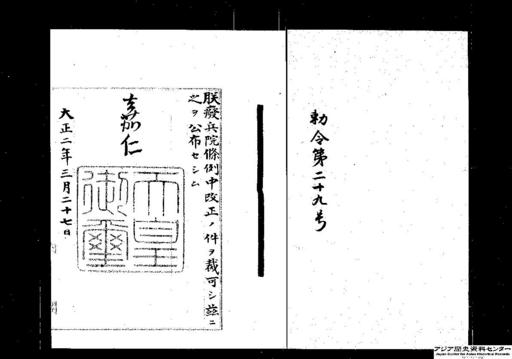 勅令第二十九号
朕廢兵院條例中改正ノ件ヲ裁可シ茲ニ
之ヲ公布セシム
嘉仁
天皇御璽
大正二年三月二十七日
アジア歴史資料センター
Japan Center for Asian Historical Records